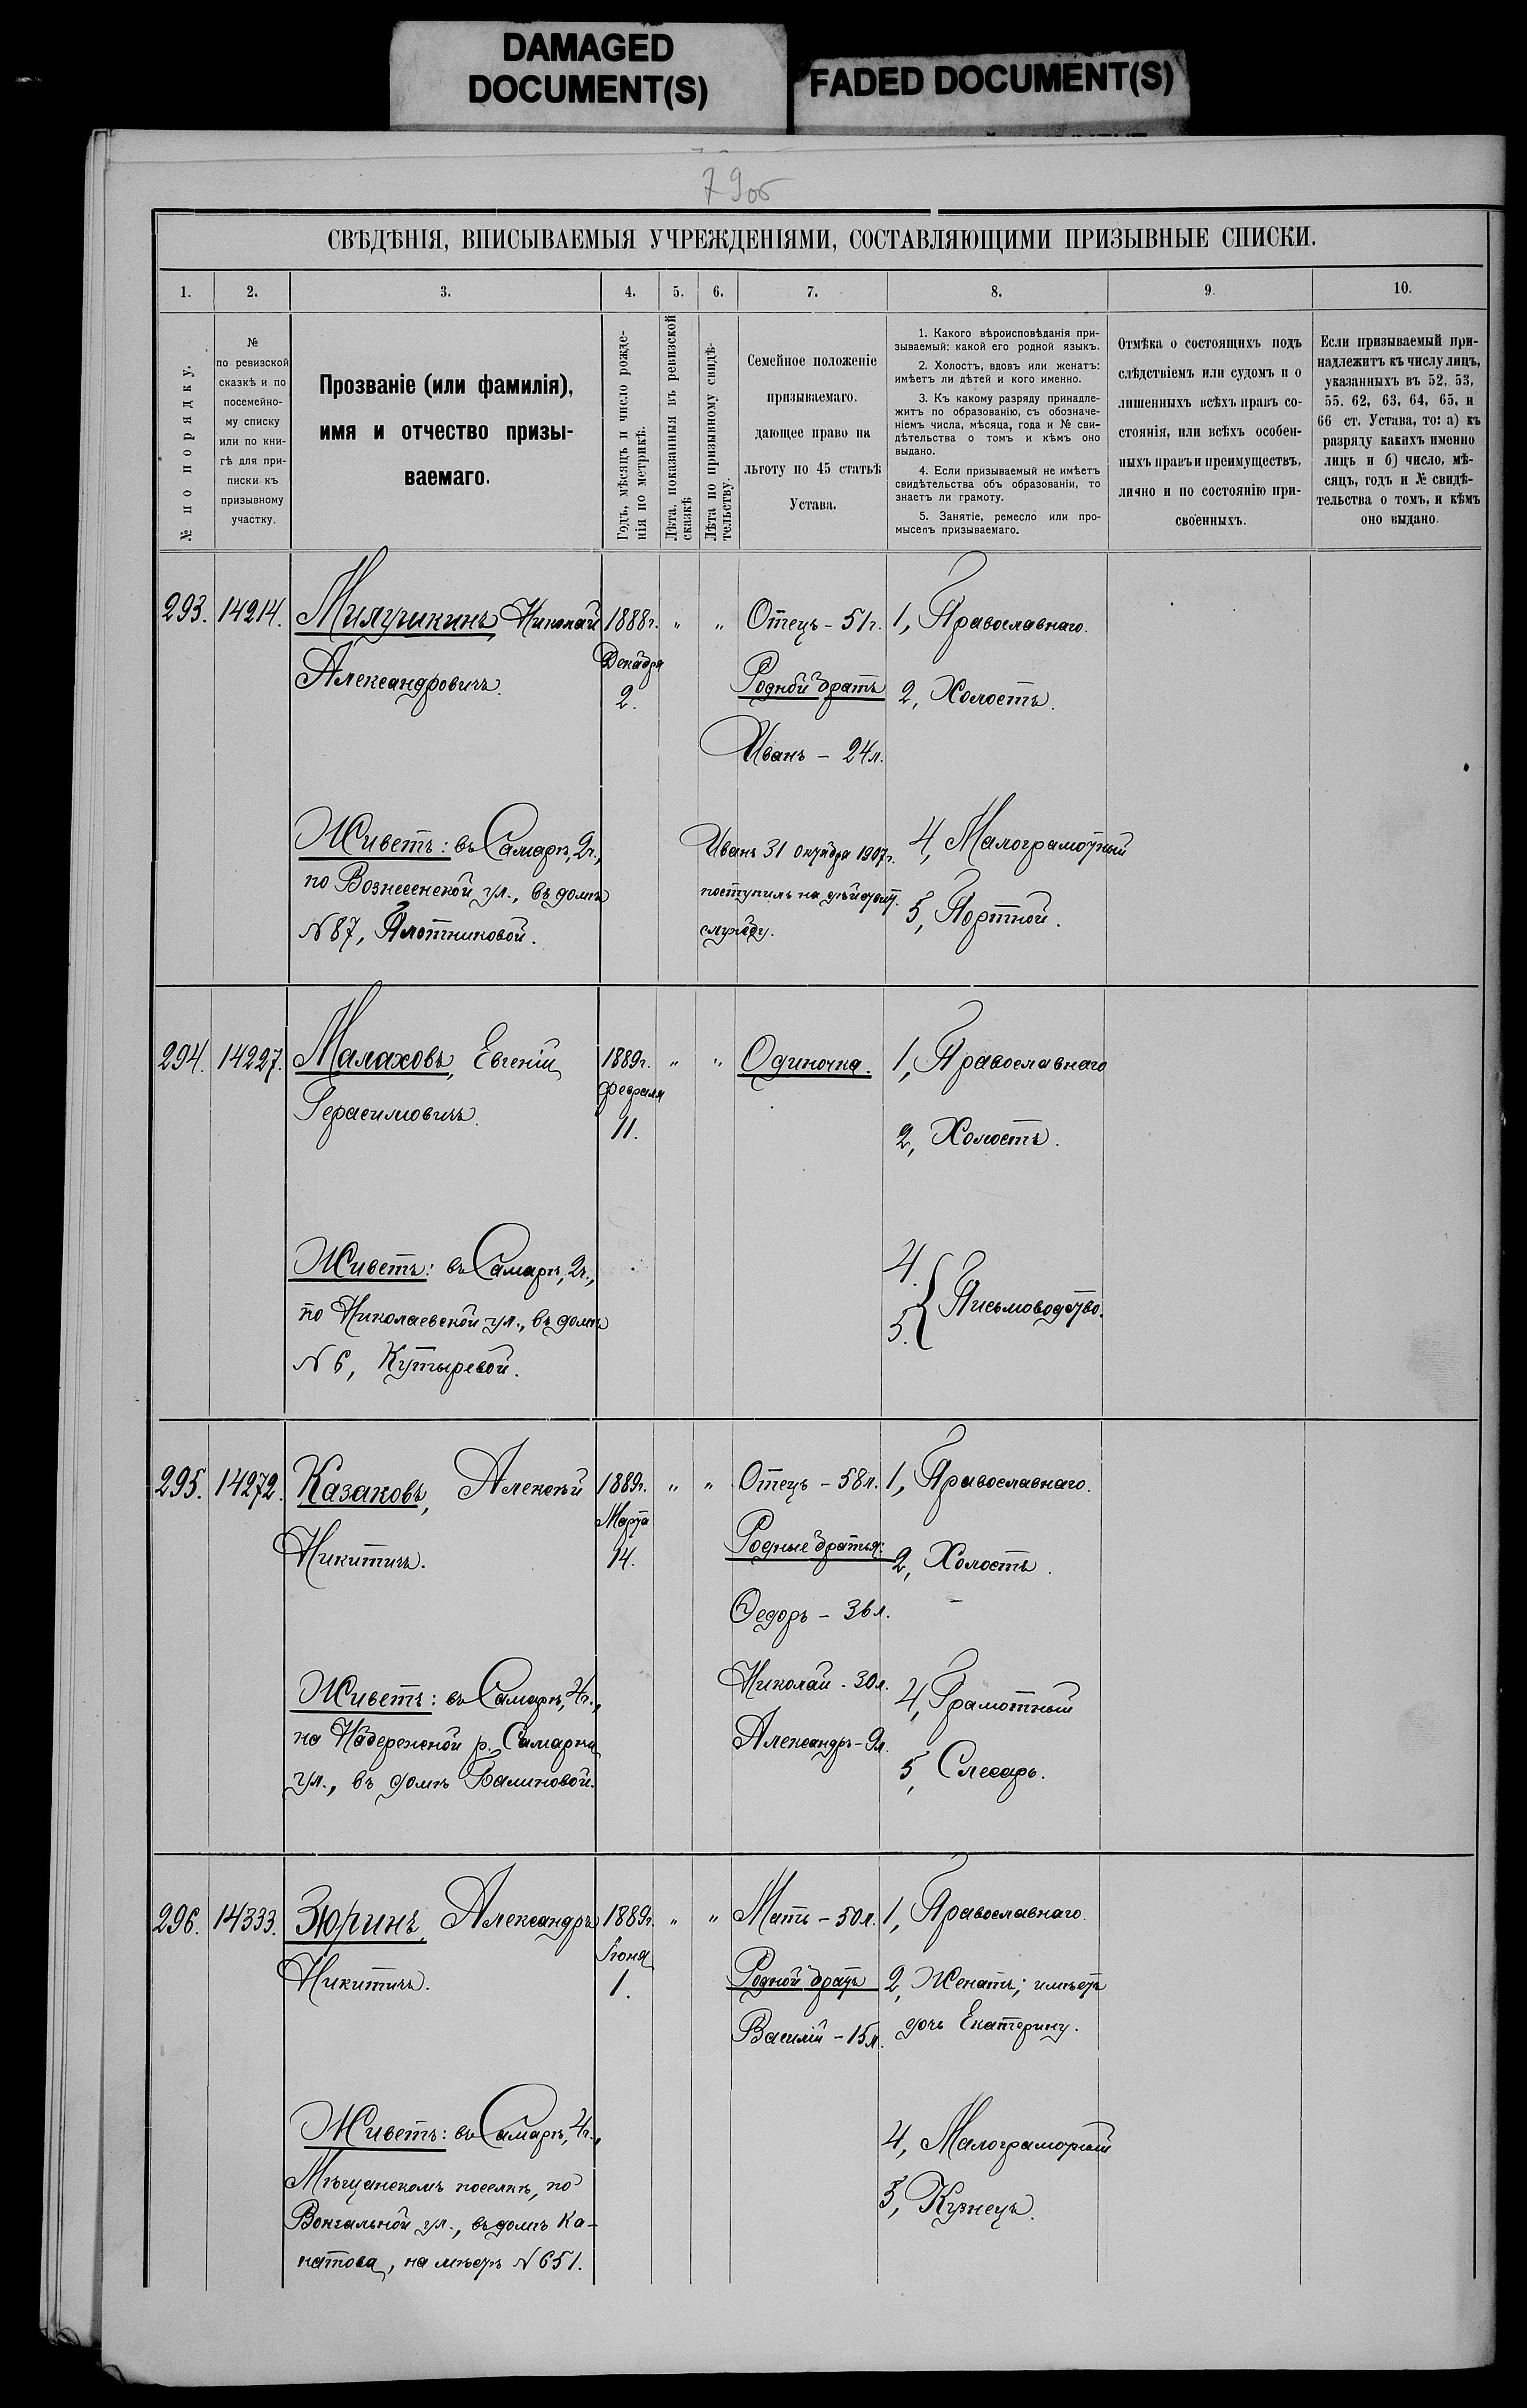 DAMAGED
DOCUMENT(S)
FADED DOCUMENT(S)
79об
СВѢДѢНІЯ, ВПИСЫВАЕМЫЯ УЧРЕЖДЕНІЯМИ, СОСТАВЛЯЮЩИМИ ПРИЗЫВНЫЕ СПИСКИ.
1. 2. 3. 4. 5. 6. 7. 8. 9. 10.
№ по порядку.
№
по ревизской
сказкѣ и по
посемейно-
му списку
или по кни-
гѣ для при-
писки къ
призывному
участку.
Прозваніе (или фамилія),
имя и отчество призы-
ваемаго.
Годъ, мѣсяцъ и число рожде-
нія по метрикѣ.
Лѣта, показанныя въ ревизской
сказкѣ
Лѣта по призывному свидѣ-
тельству.
Семейное положеніе
призываемаго,
дающее право на
льготу по 45 статьѣ
Устава.
1. Какого вѣроисповѣданія при-
зываемый: какой его родной языкъ.
2. Холостъ, вдовъ или женатъ:
имѣетъ ли дѣтей и кого именно.
3. Къ какому разряду принадле-
житъ по образованію, съ обозначе-
ніемъ числа, мѣсяца, года и № сви-
дѣтельства о томъ и кѣмъ оно
выдано.
4. Если призываемый не имѣетъ
свидѣтельства объ образованіи, то
знаетъ ли грамоту.
5. Занятіе, ремесло или про-
мыселъ призываемаго.
Отмѣка о состоящихъ подъ
слѣдствіемъ или судомъ и о
лишенныхъ всѣхъ правъ со-
стоянія, или всѣхъ особен-
ныхъ правъ и преимуществъ,
лично и по состоянію при-
своенныхъ.
Если призываемый при-
надлежитъ къ числу лицъ,
указанныхъ въ 52, 53,
55. 62, 63, 64, 65, и
66 ст. Устава, то: а) къ
разряду какихъ именно
лицъ и б) число, мѣ-
сяцъ, годъ и № свидѣ-
тельства о томъ, и кѣмъ
оно выдано.
293. 14214. Милушкинъ, Николай 1888г. " " Отецъ - 51г. 1, Православнаго.
Александровичъ. Декабря
2. Родной братъ 2, Холостъ.
Иванъ - 24л.
Живетъ: въ Самарѣ, 2ч., Иванъ 31 октября 1907г. 4, Малограмотный
по Вознесенской ул., въ домѣ поступилъ на дѣйствит. 5, Портной.
N 87, Плотниковой. службу.
294. 14227. Малаховъ, Евгеній 1889г. " " Одиночка. 1, Православнаго
Герасимовичъ. Февраля
11. 2, Холостъ.
Живетъ: въ Самарѣ, 2ч., 4.
по Николаевской ул., въ домѣ 5. Письмоводство.
N 6, Кутыревой.
295. 14272. Казаковъ, Алексѣй 1889г. " " Отецъ - 58л. 1, Православнаго.
Марта
Никитичъ. 14. Родные братья: 2, Холостъ.
Федоръ - 36л.
Живетъ: въ Самарѣ, 4ч., Николай - 30л. 4, Грамотный
на Набережной р. Самарки Александръ - 9л.
ул., въ домѣ Балиновой. 5, Слесарь.
296. 14333. Зюринъ, Александръ 1889г. " " Мать - 50л. 1, Православнаго.
Іюня
Никитичъ. 1. Родной братъ 2, Женатъ; имѣетъ
Василій - 15л. дочь Екатерину.
Живетъ: въ Самарѣ, 4ч., 4, Малограмотный
Мѣщанскомъ поселкѣ, по 5, Кузнецъ.
Вокзальной ул., въ домѣ Ка-
натова, на мѣстѣ N 651.